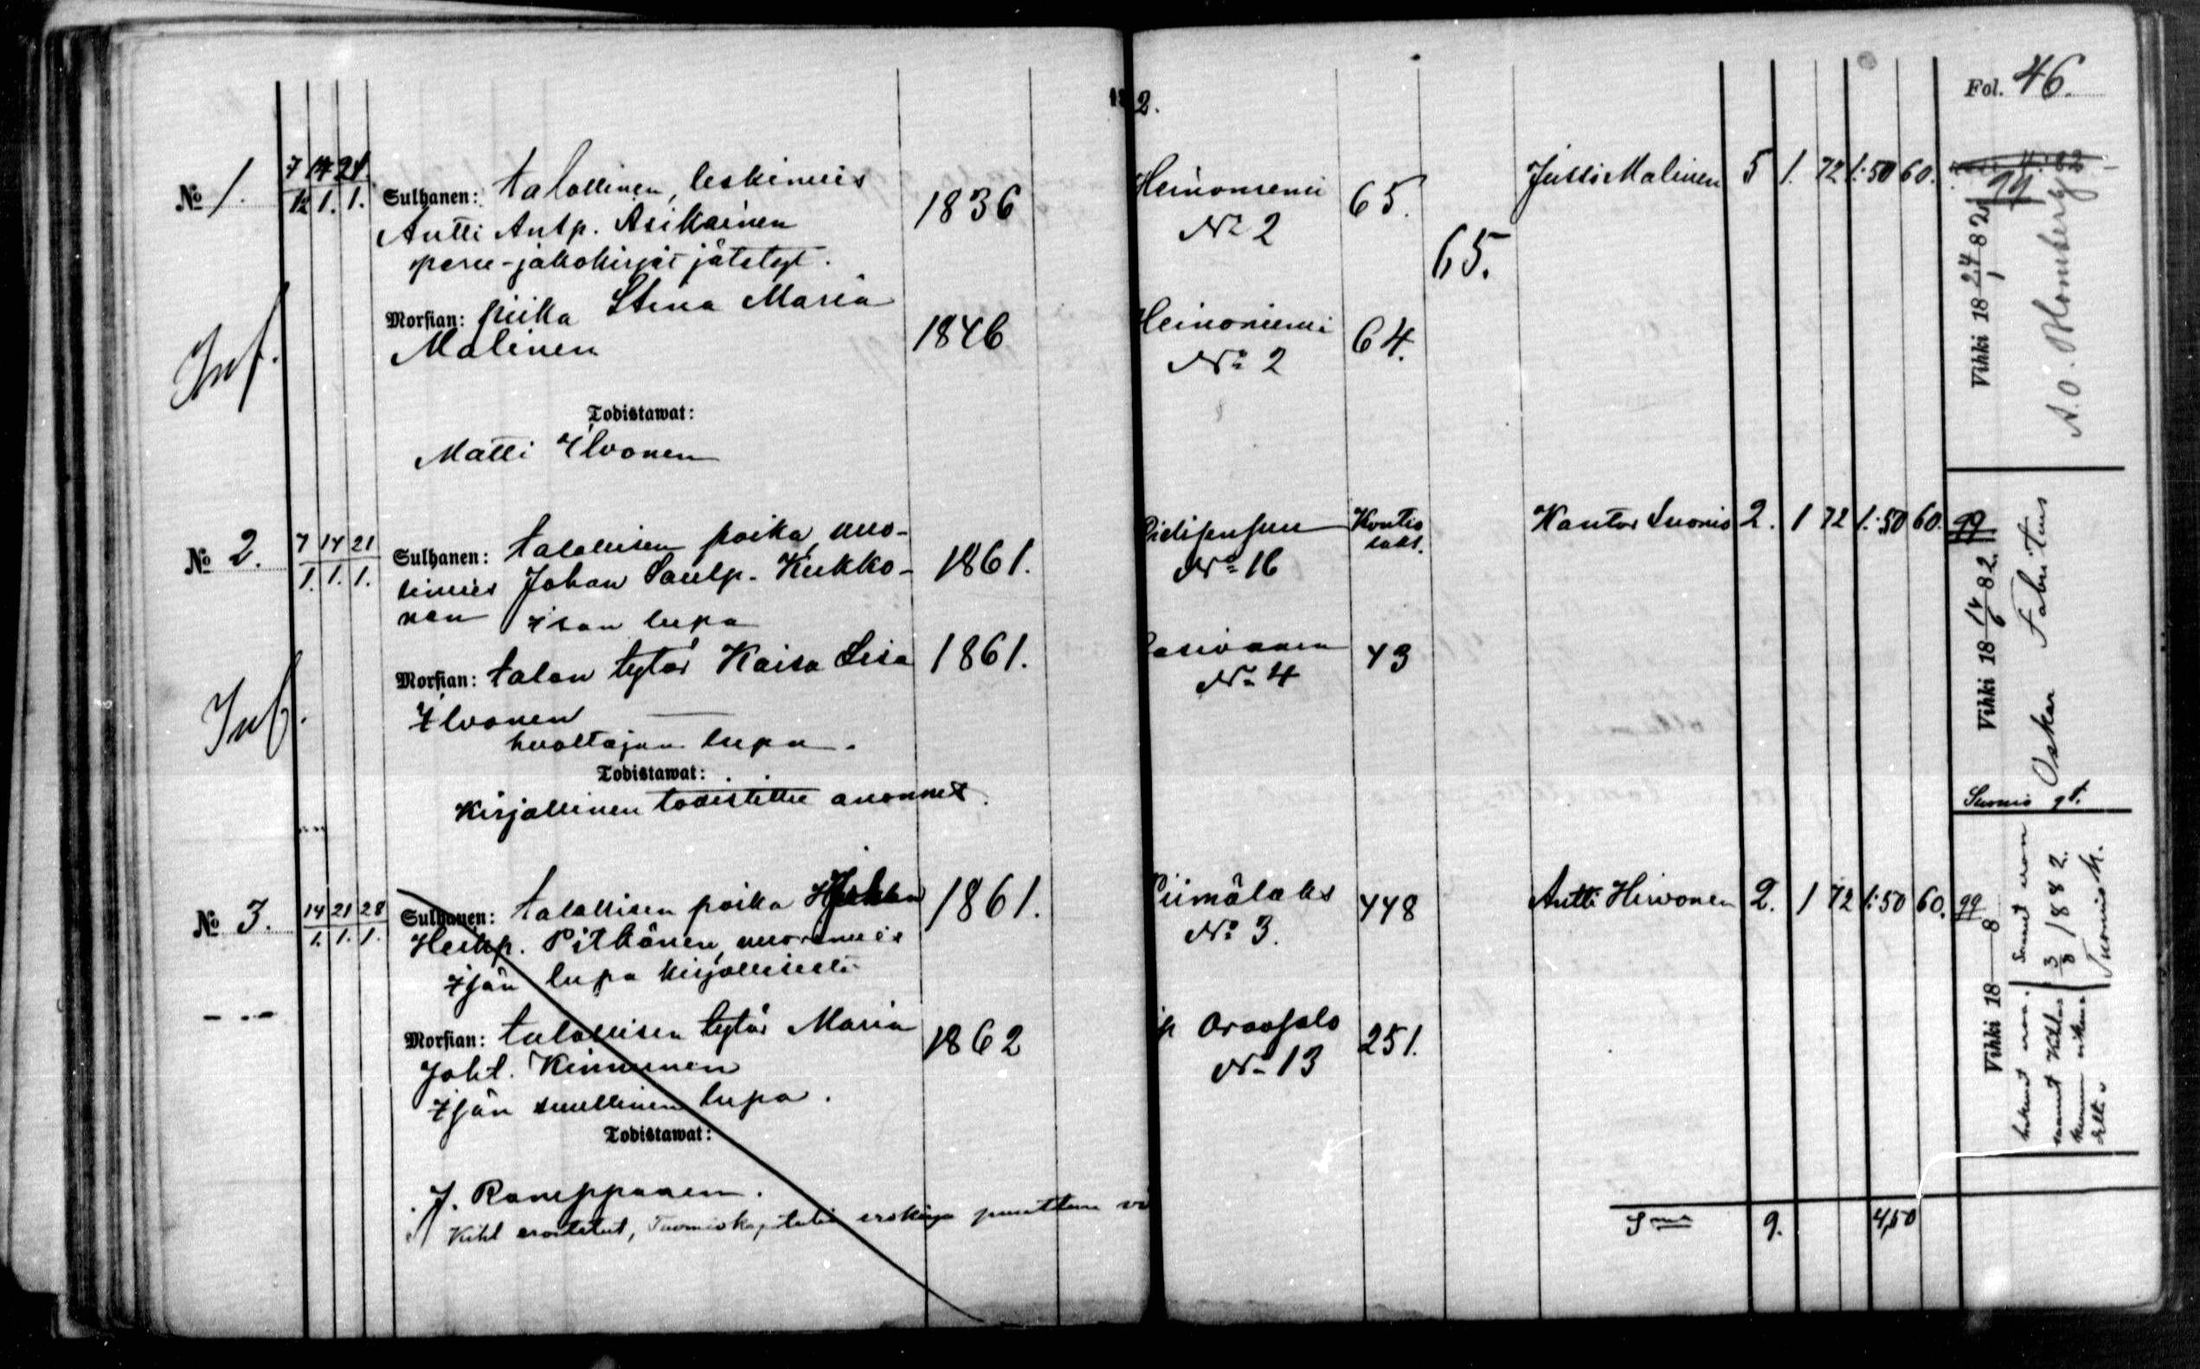 2.
Fol. 46.
№ 1.
7 14 21.
12 1. 1.
Sulhanen: talollinen, leskimies
Antti Antp. Asikainen
peru-jakokirjat jätetyt.
1836
Heinoniemi
№ 2
65.
65.
Jussi Malinen 5 1. 72 1:50 60. 99
Inf.
Morsian: piika Stina Maria
Malinen
1846
Heinoniemi
№ 2
64.
Todistawat:
Matti Ilvonen
Vihki 18 24/1 82
A. O. Blomberg
№ 2.
7 14 21
1. 1. 1.
Sulhanen: talollisen poika, nuo-
rimies Johan Paulp. Kukko-
nen Isan lupa
1861.
№ 16
Kontio
laks.
Kantor Suonio 2. 1 72 1:50 60. 99
Inf.
Morsian: talon tytär Kaisa Lisa
Ilvonen
huoltajan lupa.
1861.
№ 4
43
Todistawat:
Kirjallinen todistettu anomus.
Vihki 18 82.
Oskar Fabritius
Suonio gt.
№ 3.
14 21 28
1. 1. 1.
Sulhanen: talollisen poika Johan
Heikp. Pitkänen, nuorimies
Isän lupa kirjallisesti
1861.
Piimälaks
№ 3.
448
Antti Hirvonen 2. 1 72 1:50 60. 99
Morsian: talollisen tytär Maria
Joht. Kinnunen
Isän suullinen lupa.
1862
№ 13
251.
Todistawat:
J. Romppanen.
Kihl erositetut, Tuomiokapitulin erokirja
Vihki 18 8
3/8 1882.
Sma 9. 4,50